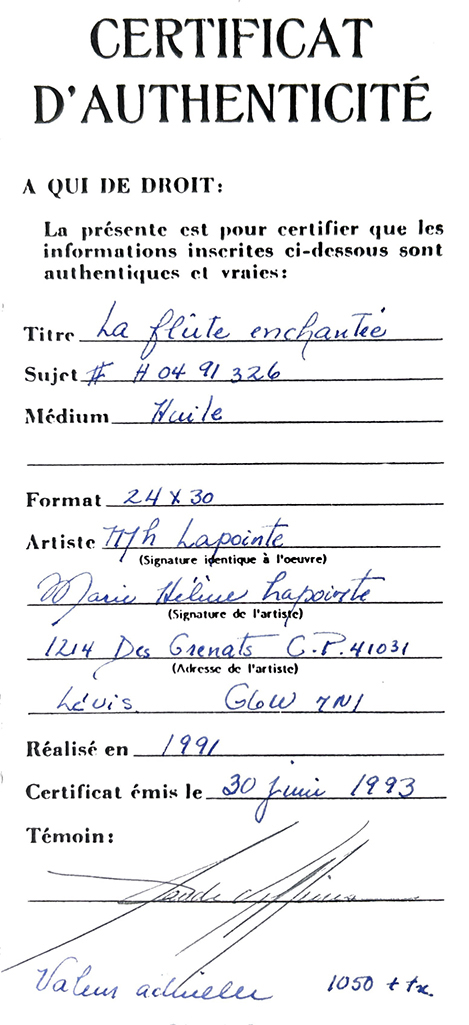 CERTIFICAT
D'AUTHENTICITÉ
A QUI DE DROIT:
La présente est pour certifier que les
informations inscrites ci-dessous sont
authentiques et vraies:
Titre La flûte enchantée
Sujet # H 04 91 326
Médium Huile
Format 24 X 30
Artiste Mh Lapointe
(Signature identique à l'oeuvre)
Marie Hélène Lapointe
(Signature de l'artiste)
1214 Des Grenats C.P. 41031
(Adresse de l'artiste)
Lévis. G6W 7N1
Réalisé en 1991
Certificat émis le 30 juin 1993
Témoin:
Valeur actuelle 1050 + tx.